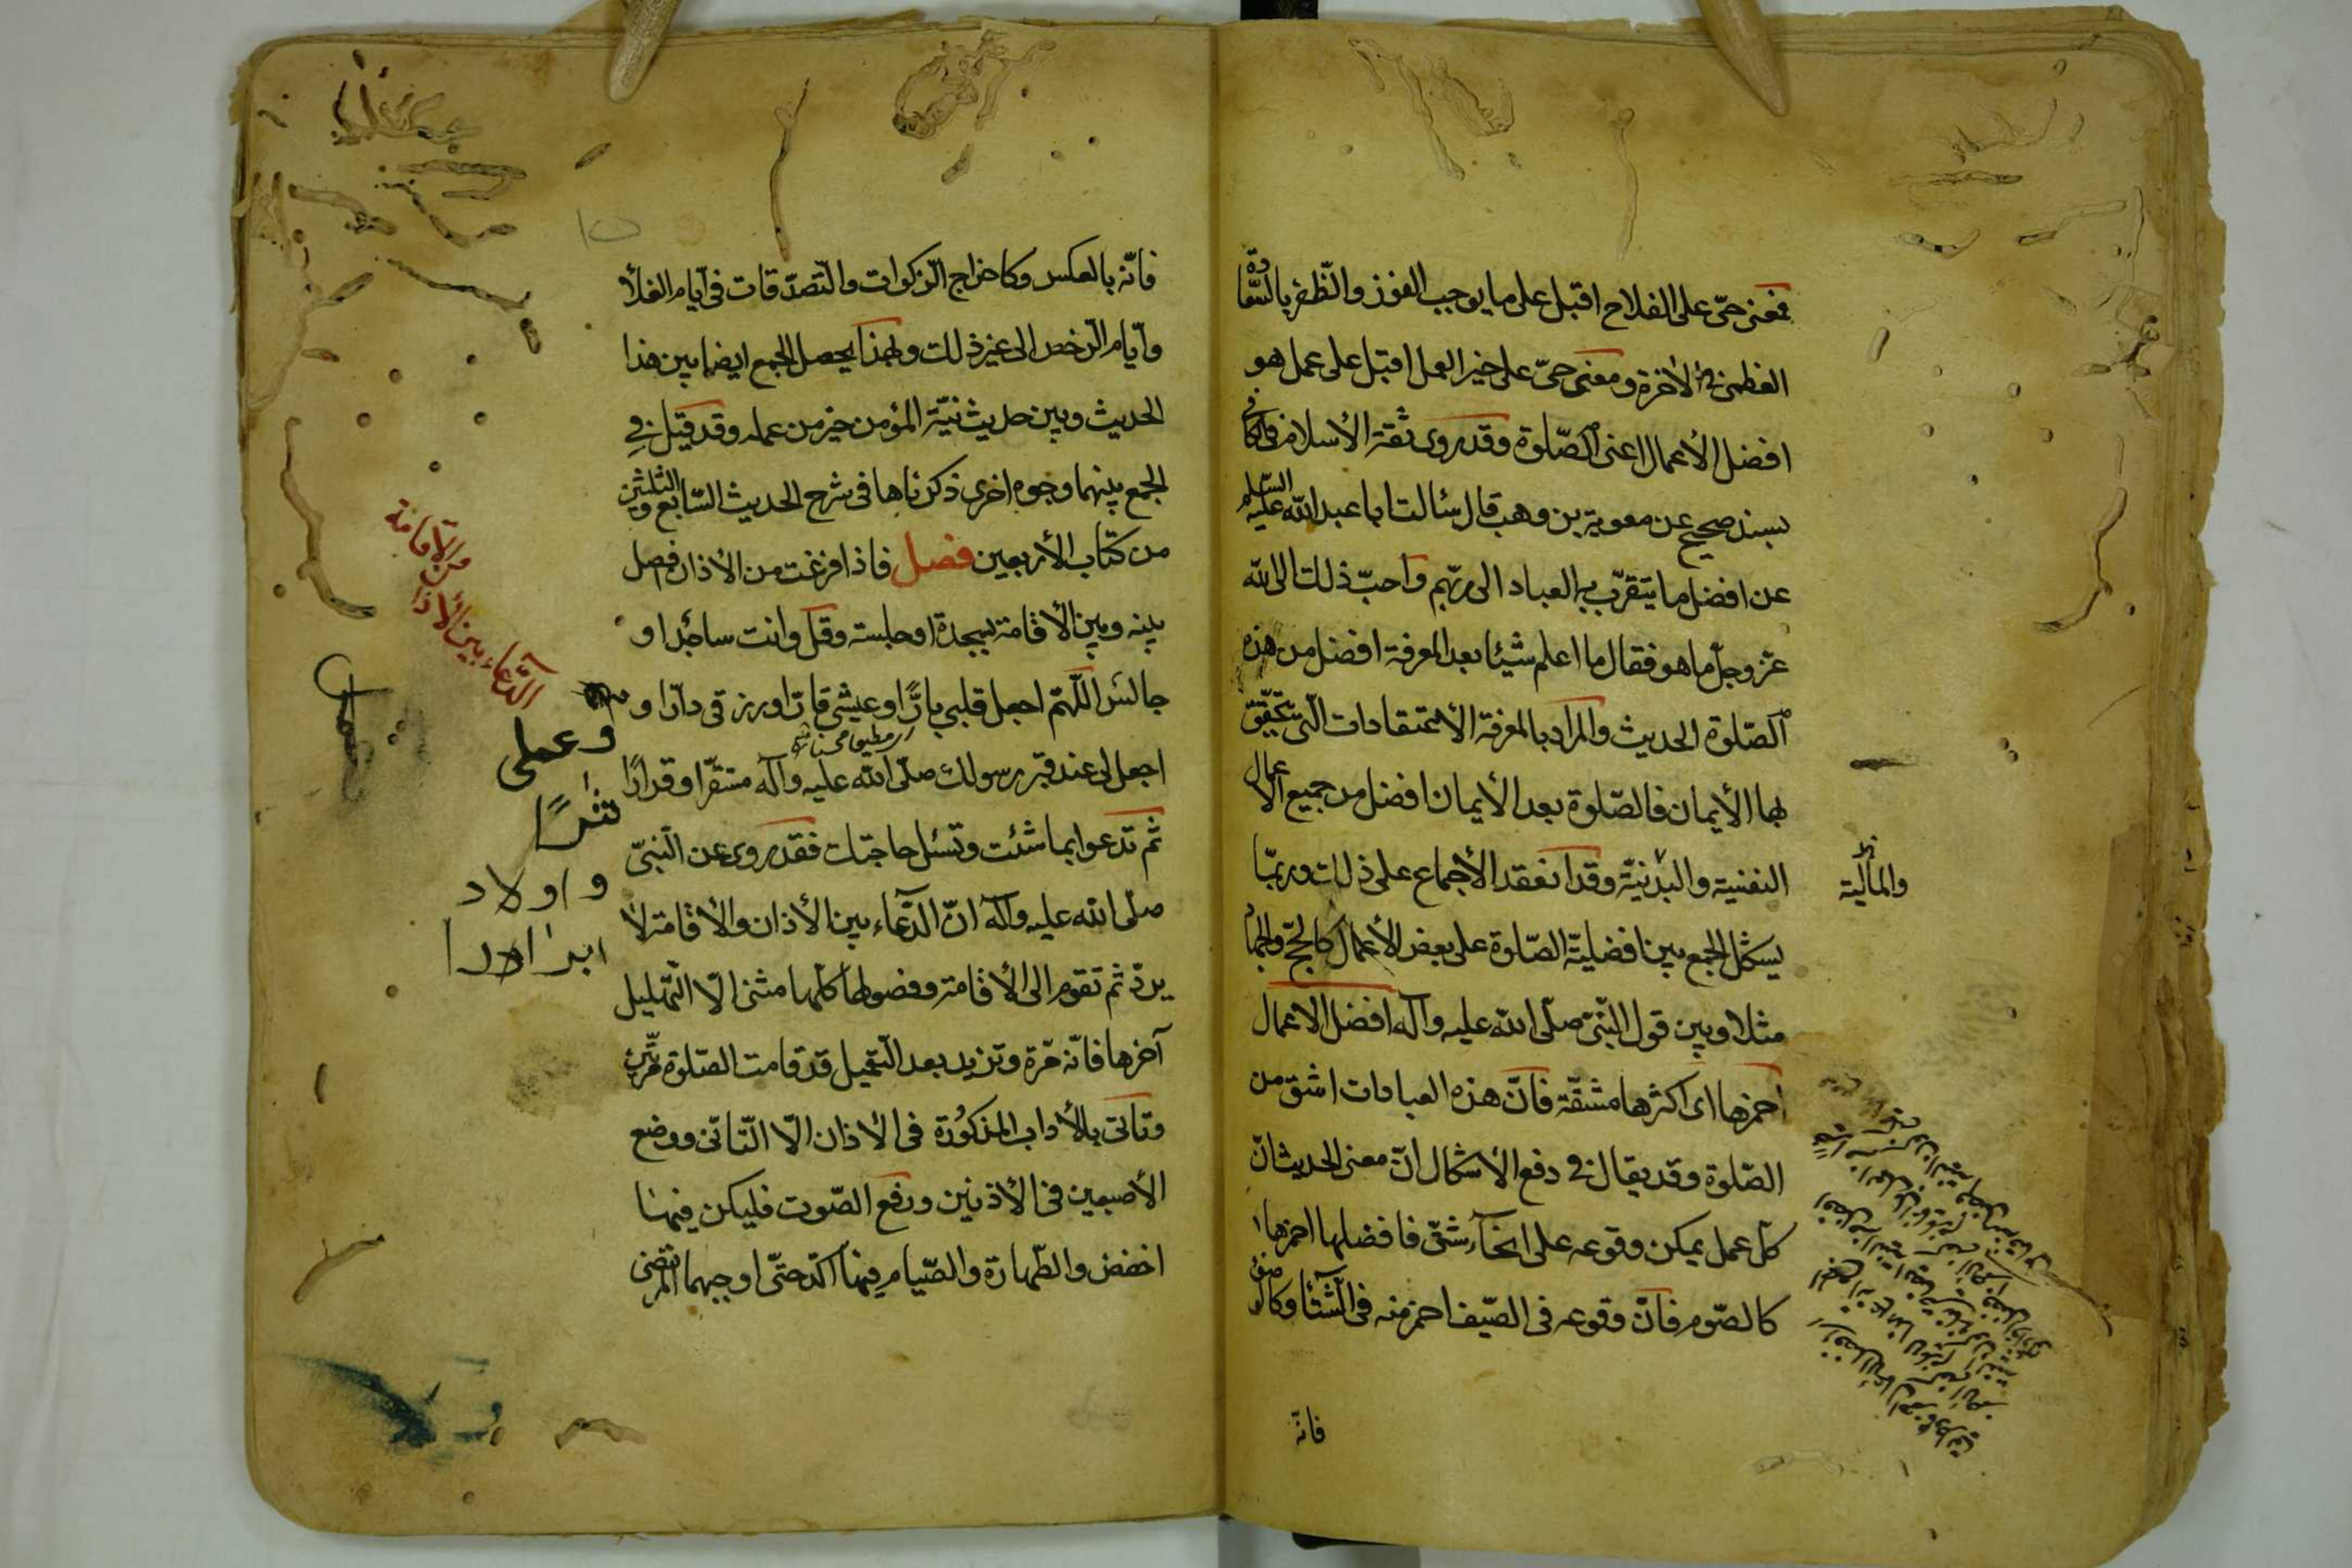 فمعنى حىّ على الفلاح اقبل على ما يوجب الفوز والظّفر بالسّعادة
العظمى فى الأخرة ومعنى حىّ على خير العمل اقبل على عمل هو
افضل الأعمال اعنى الصّلوة وقد روى ثقة الأسلام فى الكافى
بسند صحيح عن معوية بن وهب قال سئالت ابا عبد الله عليه السّلم
عن افضل ما يتقرّب به العباد الى ربّهم واحبّ ذلك الى الله
عزّ وجلّ ما هو فقال ما اعلم شيئا بعد المعرفة افضل من هذه
الصّلوة الحديث والمراد بالمعرفة الأعتقادات الّتى يتحقّق
بها الأيمان فالصّلوة بعد الأيمان افضل من جميع الأعمال
النفسية والبدنيّة وقد انعقد الأجماع على ذلك وربمّا
والمالية
يستشكل الجمع بين افضليّة الصّلوة على بعض الأعمال كالحجّ والجهاد
مثلا وبين قول النبّى صلّى الله عليه وآله افضل الاعمال
احمزها اى اكثرها مشقّة فانّ هذه العبادات اشق من
الصّلوة وقد يقال فى دفع الأشكال انّ معنى الحديث انّ
كلّ عمل يمكن وقوعه على انحآء شتّى فافضلها احمزها
كالصّوم فانّ وقوعه فى الصّيف احمز منه فى الشّتآء وكالوضوء
فانّه
فانّه بالعكس وكاخراج الزكوات والتّصدّقات فى ايّام الغلأ
وايّام الرّخص الى غير ذلك وبهذا يحصل الجمع ايضا بين هذا
الحديث وبين حديث نيّة المؤمن خير من عمله وقد قيل فى
الجمع بينهما وجوه اخرى ذكرناها فى شرح الحديث السّابع والثلثين
من كتاب الأربعين فصل فاذا فرغت من الأذان فافصل
بينه وبين الأقامة بسجدة او جلسته وقل وانت ساجدا او
جالس اللّهمّ اجعل قلبى بارّا وعيشى قارّا ورزقى دارّا و
اجعل لى عند قبر رسولك صلّى الله عليه وآله مستقرّا وقرارًا
ثمّ تدعوا بما شئت وتسئل حاجتك فقد روى عن النّبىّ
صلّى الله عليه وآله انّ الدّعاء بين الأذان والأقامة لا
يردّ ثم تقوم الى الأقامة وفصولها كلّها مثنى الّا التّهليل
آخرها فانّه مرّة وتزيد بعد التّعميل قد قامت الصّلوة مرّتين
وتاتى بالأداب المذكورة فى الاذان الّا التّاتّى ووضع
الأصبعين فى الأذنين ورفع الصّوت فليكن فيها
اخفض والطّهارة والصّيام فيها آكد حتّى اوجبهما المرتضى
الدّعاء بين الأذان
والأقامة
وعملى
و اولاد
ابرارا